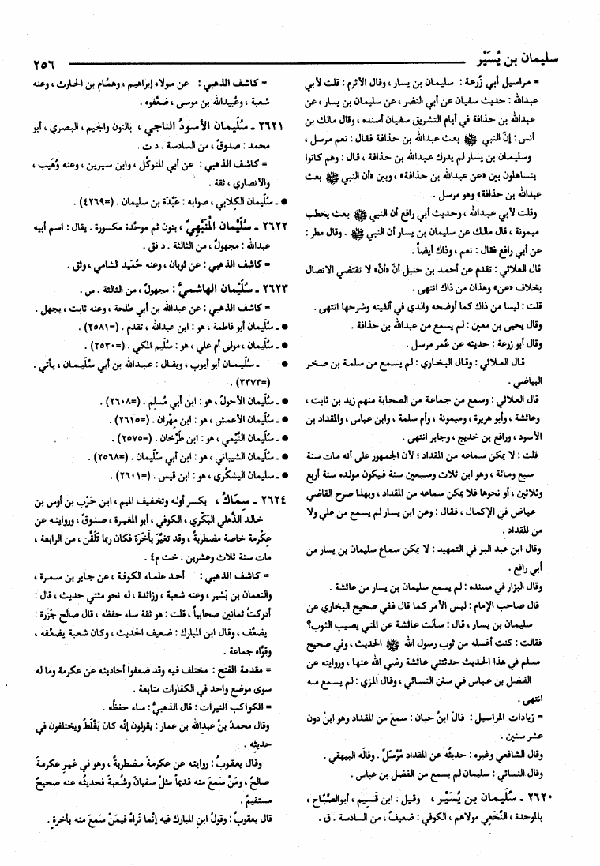 سليمان بن يُسَيْر
٢٥٦
= مراسيل أبي زُرعة : سليمان بن يسار ، وقال الأثرم : قلت لأبي
عبدالله : حديث سفيان عن أبي النضر ، عن سليمان بن يسار ، عن
عبدالله بن حذافة في أيام التشريق سفيان أسنده ، وقال مالك بن
أنس : إنَّ النبي ﷺ بعث عبدالله بن حذافة فقال : نعم مرسل ،
وسليمان بن يسار لم يدرك عبدالله بن حذافة ، قال : وهم كانوا
يتساهلون بين «عن عبدالله بن حذافة» ، وبين «أن النبي ﷺ بعث
عبدالله بن حذافة» وهو مرسل .
وقلت لأبي عبدالله ، وحديث أبي رافع أن النبي ﷺ بعث يخطب
ميمونة ، قال مالك عن سليمان بن يسار أن النبي ﷺ . وقال مطر :
عن أبي رافع فقال : نعم ، وذاك أيضاً .
قال العلائي : تقدم عن أحمد بن حنبل أنَّ «أنَّ» لا تقتضي الاتصال
بخلاف «عن» وهذان من ذاك انتهى .
قلت : ليسا من ذاك كما أوضحه والدي في ألفيته وشرحها انتهى .
وقال يحيى بن معين : لم يسمع من عبدالله بن حذافة .
وقال أبو زرعة : حديثه عن عُمر مرسل .
قال العلائي : وقال البخاري : لم يسمع من سلمة بن صخر
البياضي .
قال العلائي : وسمع من جماعة من الصحابة منهم زيد بن ثابت ،
وعائشة ، وأبو هريرة ، وميمونة ، وأم سلمة ، وابن عباس ، والمقداد بن
الأسود ، ورافع بن خديج ، وجابر انتهى .
قلت : لا يمكن سماعه من المقداد ؛ لأن الجمهور على أنه مات سنة
سبع ومائة ، وهو ابن ثلاث وسبعين سنة فيكون مولده سنة أربع
وثلاثين ، أو نحوها فلا يمكن سماعه من المقداد ، وبهذا صرح القاضي
عياض في الإكمال ، فقال : وعن ابن يسار لم يسمع من علي ولا
من المقداد .
وقال ابن عبد البر في التمهيد : لا يمكن سماع سليمان بن يسار من
أبي رافع .
وقال البزار في مسنده : لم يسمع سليمان بن يسار من عائشة .
قال صاحب الإمام : ليس الأمر كما قال ففي صحيح البخاري عن
سليمان بن يسار ، قال : سألت عائشة عن المني يصيب الثوب؟
فقالت : كنت أغسله من ثوب رسول الله ﷺ الحديث ، وفي صحيح
مسلم في هذا الحديث حدثتني عائشة رضي الله عنها ، وروايته عن
الفضل بن عباس في سنن النسائي ، وقال المزي : لم يسمع منه
انتهى .
= زيادات المراسيل : قال ابنُ حبان : سمعَ من المقداد وهو ابن دون
عشر سنين .
وقال الشافعي وغيره : حديثُه عن المقداد مُرْسَلٌ ، وقاله البيهقي .
وقال النسائي : سليمان لم يسمع من الفضل بن عباس .
٢٦٢٠ - سُلَيمان بن يُسَيْر ، وقيل : ابن قسيم ، أبوالصَّبَّاح ،
بالموحدة ، النَّخَعي مولاهم ، الكوفي : ضعيفٌ ، من السادسة . ق .
= كاشف الذهبي : عن مولاه إبراهيم ، وهمَّام بن الحارث ، وعنه
شعبة ، وعُبيدالله بن موسى ، ضعَّفوه .
٢٦٢١ - سُليمان الأسودُ الناجي ، بالنون والجيم ، البصري ، أبو
محمد : صدوقٌ ، من السادسة . د ت .
= كاشف الذهبي : عن أبي المتوكِّل ، وابن سيرين ، وعنه وُهَيب ،
والأنصاري ، ثقة .
● - سُليمان الكِلابي ، صوابه : عَبْدة بن سليمان . (=٤٢٦٩)
٢٦٢٢ - سُلَيْمان المُنَبِّهيُّ ، بنون ثم موحدة مكسورة . يقال : اسم أبيه
عبدالله : مجهولٌ ، من الثالثة . د فق .
= كاشف الذهبي : عن ثوبان ، وعنه حُمَيد الشامي ، وثق .
٢٦٢٣ - سُلَيمان الهاشميُّ : مجهولٌ ، من الثالثة . س .
= كاشف الذهبي : عن عبدالله بن أبي طلحة ، وعنه ثابت ، يجهل .
● - سُليمان أبو فاطمة ، هو : ابن عبدالله ، تقدم . (=٢٥٨١)
● - سُليمان ، مولى أم علي ، هو : سُلَيم المكي . (=٢٥٣٠)
● - سُلَيمان أبو أيوب ، ويقال : عبدالله بن أبي سُلَيمان ، يأتي .
(=٣٣٧٣)
● - سُلَيمان الأحولُ ، هو : ابن أبي مُسْلِم . (=٢٦٠٨)
● - سُلَيمان الأعمش ، هو : ابن مِهْران . (=٢٦١٥)
● - سُلَيمان التَّيْمي ، هو : ابن طَرْخان . (=٢٥٧٥)
● - سُلَيمان الشيباني ، هو : ابن أبي سُلَيمان . (=٢٥٦٨)
● - سليمان اليشكُري ، هو : ابن قيس . (=٢٦٠١)
٢٦٢٤ - سِماكُ ، بكسر أوله وتخفيف الميم ، ابن حَرْب بن أوس بن
خالد الذُّهلي البَكْري ، الكوفي ، أبو المغيرة ، صدوقٌ ، وروايته عن
عِكْرمة خاصة مضطربةٌ ، وقد تغيَّر بأخَرَة فكان ربما تَلَقَّن ، من الرابعة ،
مات سنة ثلاث وعشرين . خت م٤ .
= كاشف الذهبي : أحد علماء الكوفة ، عن جابر بن سمرة ،
والنعمان بن بَشير ، وعنه شعبة ، وزائدة ، له نحو مئتي حديث ، قال :
أدركتُ ثمانين صحابياً ، قلت : هو ثقة ساء حفظه ، قال صالح جَزَرة :
يضعَّف ، وقال ابن المبارك : ضعيف الحديث ، وكان شعبة يضعِّفه ،
وقوَّاه جماعة .
= مقدمة الفتح : مختلف فيه وقد ضعفوا أحاديثه عن عكرمة وما له
سوى موضع واحد في الكفارات متابعة .
= الكواكب النيرات : قال الذهبيُّ : ساء حفظُه .
وقال محمدُ بنُ عبدالله بن عمار : يقولون إنَّه كان يَغْلَطُ ويختلفون في
حديثه .
وقال يعقوبُ : روايته عن عكرمةَ مضطربةٌ ، وهو في غيرِ عكرمةَ
صالحٌ ، ومَنْ سَمعَ منه قديماً مثل سفيانَ وشُعبةَ فحديثُه عنه صحيحٌ
مستقيمٌ .
قال يعقوبُ : وقولُ ابن المبارك فيه إنَّما نَراهُ فيمَنْ سَمِعَ منه بأخَرَةٍ .